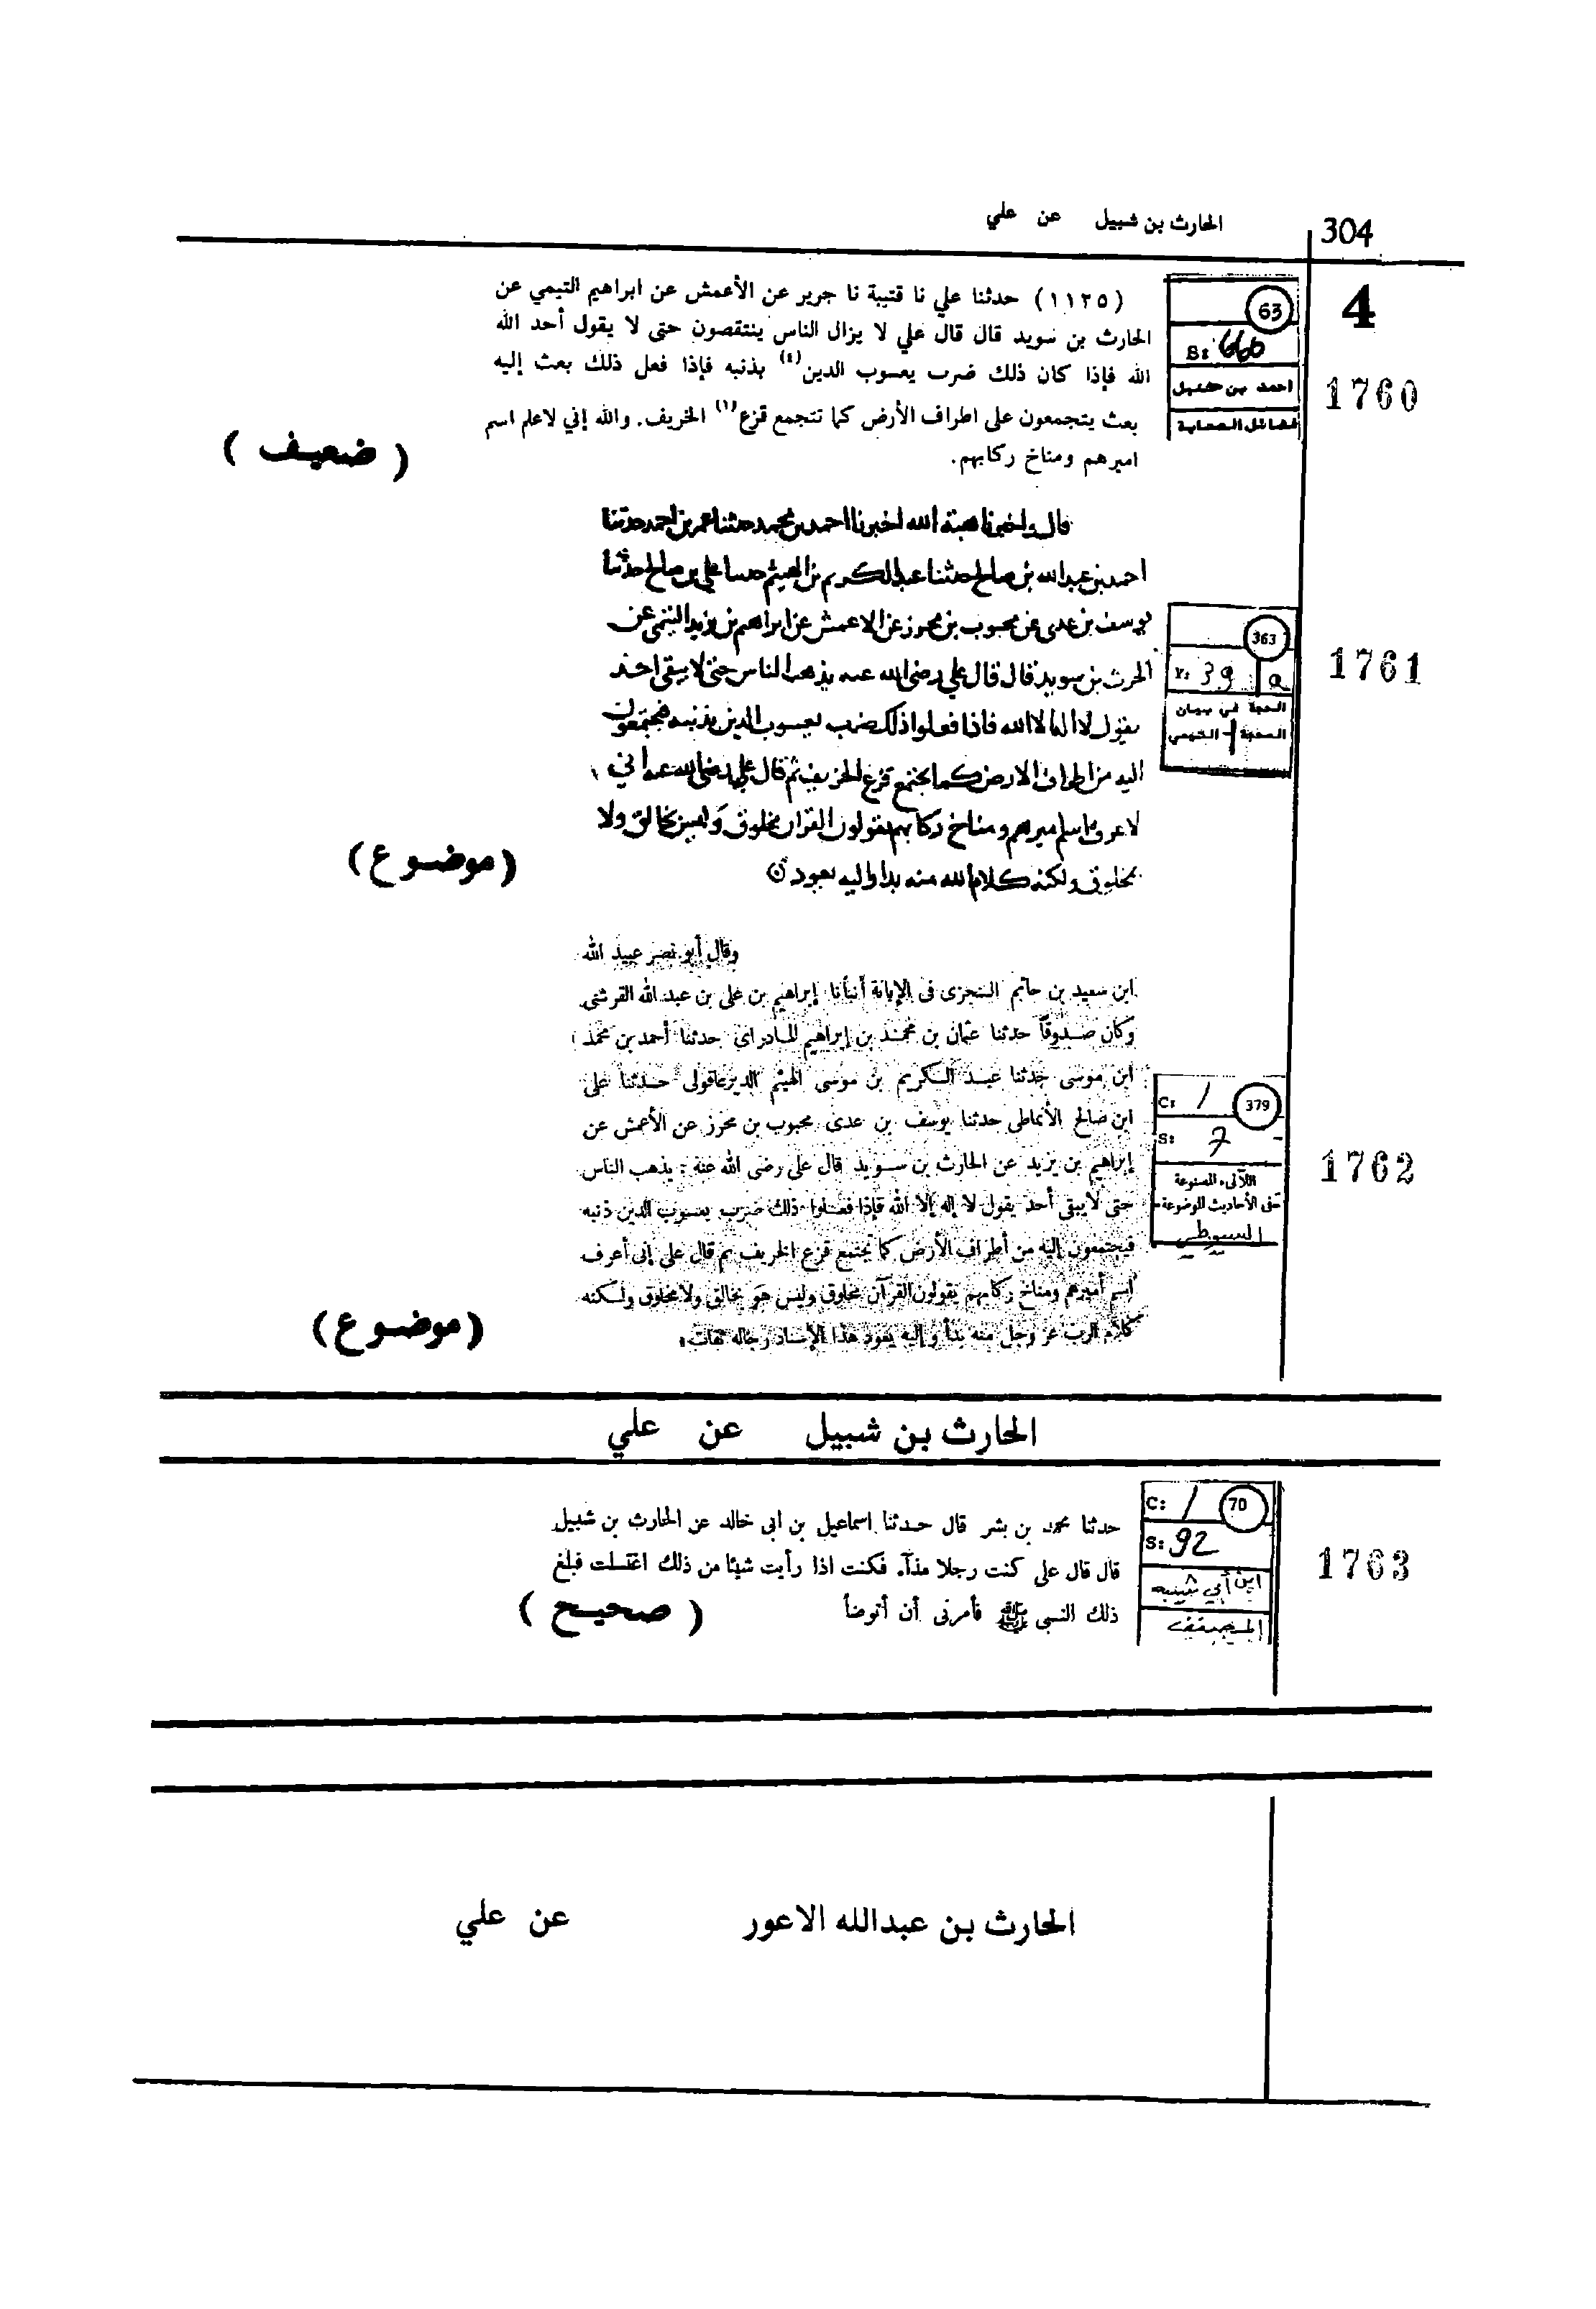 الحارث بن شبيل عن علي
304
4
63
B: 660
احمد بن حنبل
فضائل الصحابة
1760
(١١٢٥) حدثنا علي نا قتيبة نا جرير عن الأعمش عن ابراهيم التيمي عن
الحارث بن سويد قال قال علي لا يزال الناس ينتقصون حتى لا يقول أحد الله
الله فإذا كان ذلك ضرب يعسوب الدين(٤) بذنبه فإذا فعل ذلك بعث إليه
بعث يتجمعون على اطراف الأرض كما تتجمع قزع(١) الخريف. والله إني لاعلم اسم
اميرهم ومناخ ركابهم.
(ضعيف)
363
Y: 39 a
الحجة في بيان
المحجة - التيمي
1761
قال واخبرنا هبة الله اخبرنا احمد بن محمد حدثنا عمر بن احمد حدثنا
احمد بن عبد الله بن صالح حدثنا عبد الكريم بن الهيثم حدثنا علي بن صالح حدثنا
يوسف بن عدى عن محبوب بن محرز عن الاعمش عن ابراهيم بن يزيد التيمى عن
الحرث بن سويد قال قال علي رضى الله عنه يذهب الناس حتى لا يبقى احد
يقول لا اله الا الله فاذا فعلوا ذلك ضرب يعسوب الدين بذنبه فيجتمعون
اليه من اطراف الارض كما يجتمع قزع الخريف ثم قال علي رضى الله عنه اني
لاعرف اسم اميرهم ومناخ ركابهم يقولون القران مخلوق وليس بخالق ولا
بمخلوق ولكنه كلام الله منه بدا واليه يعود
(موضوع)
379
C: 1
S: 7
اللآلىء المصنوعة
فى الأحاديث الموضوعة
السيوطي
1762
وقال أبو نصر عبيد الله
ابن سعيد بن حاتم السنجزى فى الإبانة أنبأنا إبراهيم بن على بن عبد الله القرشى
وكان صدوقاً حدثنا عثمان بن محمد بن إبراهيم المادراي حدثنا أحمد بن محمد
ابن موسى حدثنا عبد الكريم بن موسى الهيثم الديرعاقولى حدثنا على
ابن صالح الأنماطى حدثنا يوسف بن عدى محبوب بن محرز عن الأعمش عن
إبراهيم بن يزيد عن الحارث بن سويد قال على رضى الله عنه: يذهب الناس
حتى لا يبقى أحد يقول لا إله إلا الله فإذا فعلوا ذلك ضرب يعسوب الدين ذنبه
فيجتمعون إليه من أطراف الأرض كما يجتمع قزع الخريف ثم قال على إنى أعرف
اسم أميرهم ومناخ ركابهم يقولون القرآن مخلوق وليس هو بخالق ولا مخلوق ولكنه
كلام الرب عز وجل منه بدأ وإليه يعود هذا الإسناد رجاله ثقات
(موضوع)
الحارث بن شبيل عن علي
70
C: 1
S: 92
ابن أبي شيبه
المصنف
1763
حدثنا محمد بن بشر قال حدثنا اسماعيل بن ابى خالد عن الحارث بن شبيل
قال قال على كنت رجلا مذآء فكنت اذا رأيت شيئا من ذلك اغتسلت فبلغ
ذلك النبى ﷺ فأمرنى أن أتوضأ
(صحيح)
الحارث بن عبدالله الاعور عن علي